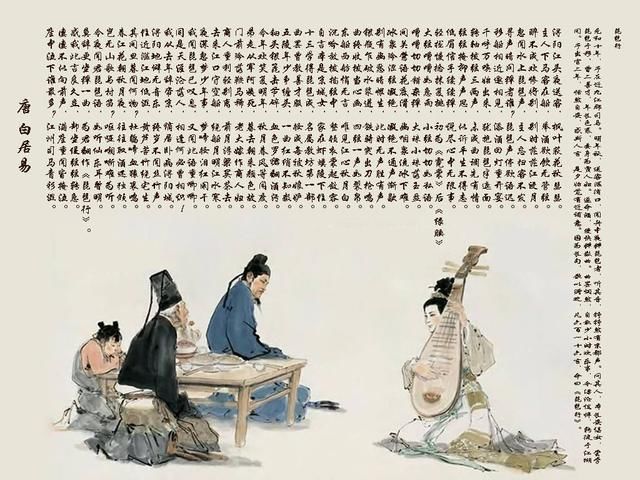 琵琶行
元和十年，予左迁九江郡司马。明年秋，送客湓浦口，闻舟中夜弹琵琶者，听其音，铮铮然有京都声。问其人，本长安倡女，尝学
琵琶于穆、曹二善才，年长色衰，委身为贾人妇。遂命酒，使快弹数曲。曲罢悯然，自叙少小时欢乐事，今漂沦憔悴，转徙于江湖
间。予出官二年，恬然自安，感斯人言，是夕始觉有迁谪意。因为长句，歌以赠之，凡六百一十六言，命曰《琵琶行》。
浔阳江头夜送客，枫叶荻花秋瑟瑟。
主人下马客在船，举酒欲饮无管弦。
醉不成欢惨将别，别时茫茫江浸月。
忽闻水上琵琶声，主人忘归客不发。
寻声暗问弹者谁？琵琶声停欲语迟。
移船相近邀相见，添酒回灯重开宴。
千呼万唤始出来，犹抱琵琶半遮面。
转轴拨弦三两声，未成曲调先有情。
弦弦掩抑声声思，似诉平生不得志。
低眉信手续续弹，说尽心中无限事。
轻拢慢捻抹复挑，初为《霓裳》后《绿腰》。
大弦嘈嘈如急雨，小弦切切如私语。
嘈嘈切切错杂弹，大珠小珠落玉盘。
间关莺语花底滑，幽咽泉流冰下难。
冰泉冷涩弦凝绝，凝绝不通声暂歇。
别有幽愁暗恨生，此时无声胜有声。
银瓶乍破水浆迸，铁骑突出刀枪鸣。
曲终收拨当心画，四弦一声如裂帛。
东船西舫悄无言，唯见江心秋月白。
沉吟放拨插弦中，整顿衣裳起敛容。
自言本是京城女，家在虾蟆陵下住。
十三学得琵琶成，名属教坊第一部。
曲罢曾教善才服，妆成每被秋娘妒。
五陵年少争缠头，一曲红绡不知数。
钿头银篦击节碎，血色罗裙翻酒污。
今年欢笑复明年，秋月春风等闲度。
弟走从军阿姨死，暮去朝来颜色故。
门前冷落鞍马稀，老大嫁作商人妇。
商人重利轻别离，前月浮梁买茶去。
去来江口守空船，绕船月明江水寒。
夜深忽梦少年事，梦啼妆泪红阑干。
我闻琵琶已叹息，又闻此语重唧唧。
同是天涯沦落人，相逢何必曾相识！
我从去年辞帝京，谪居卧病浔阳城。
浔阳地僻无音乐，终岁不闻丝竹声。
住近湓江地低湿，黄芦苦竹绕宅生。
其间旦暮闻何物？杜鹃啼血猿哀鸣。
春江花朝秋月夜，往往取酒还独倾。
岂无山歌与村笛？呕哑嘲哳难为听。
今夜闻君琵琶语，如听仙乐耳暂明。
莫辞更坐弹一曲，为君翻作《琵琶行》。
感我此言良久立，却坐促弦弦转急。
凄凄不似向前声，满座重闻皆掩泣。
座中泣下谁最多？江州司马青衫湿。
唐 白居易